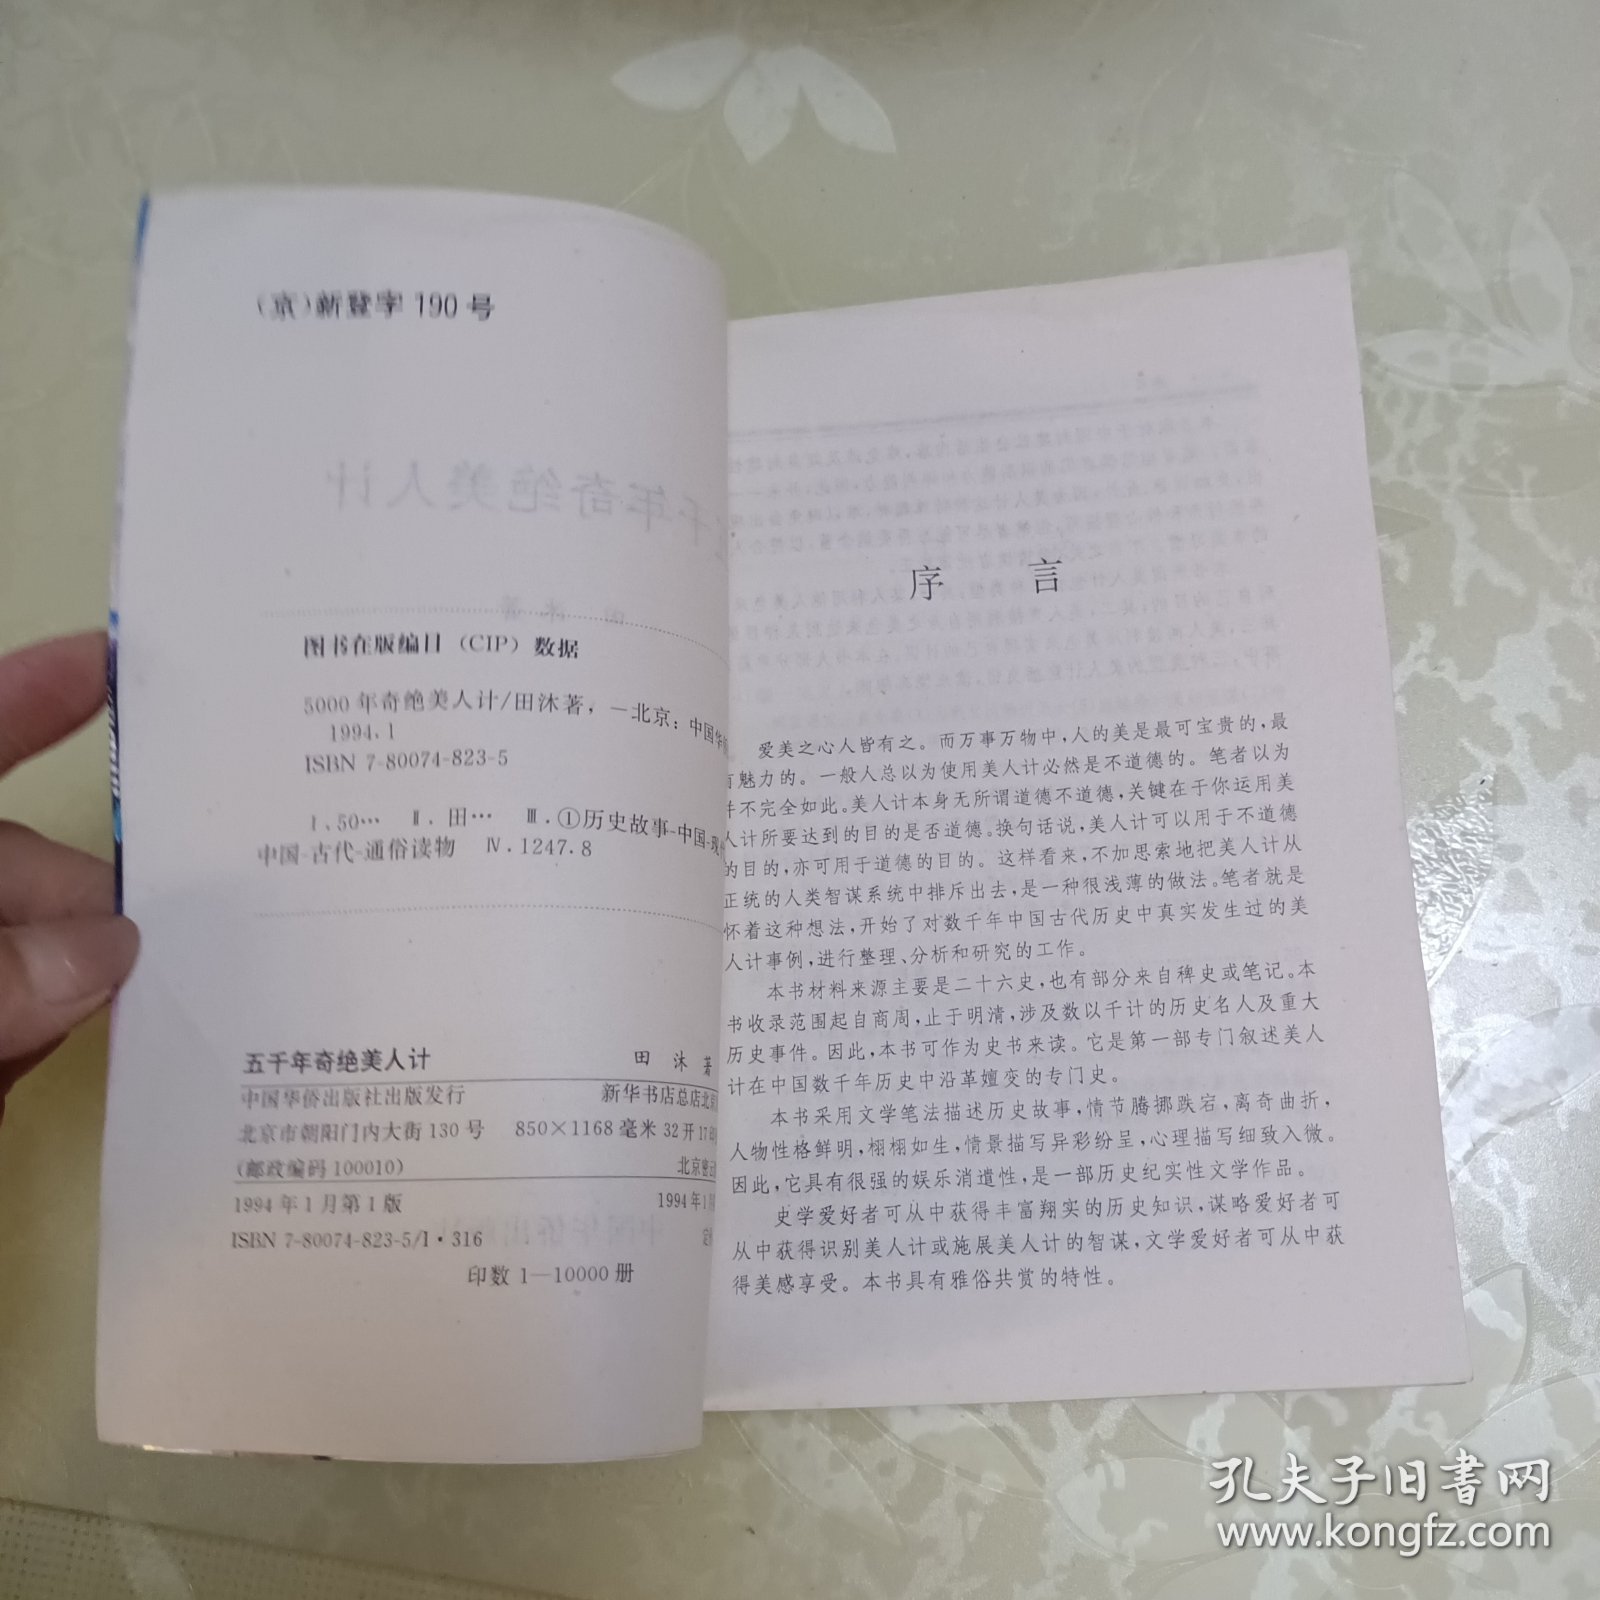 (京)新登字190号
图书在版编目(CIP)数据
5000年奇绝美人计/田沐著，—北京：中国华
1994.1
ISBN 7-80074-823-5
Ⅰ、50… Ⅱ.田… Ⅲ.①历史故事-中国-现
中国-古代-通俗读物 Ⅳ.1247.8
五千年奇绝美人计 田沐著
中国华侨出版社出版发行 新华书店总店北京
北京市朝阳门内大街130号 850×1168毫米32开17印
(邮政编码100010) 北京密云
1994年1月第1版 1994年1月
ISBN 7-80074-823-5/I·316
印数1—10000册
序言
爱美之心人皆有之。而万事万物中，人的美是最可宝贵的，最
有魅力的。一般人总以为使用美人计必然是不道德的。笔者以为
并不完全如此。美人计本身无所谓道德不道德，关键在于你运用美
人计所要达到的目的是否道德。换句话说，美人计可以用于不道德
的目的，亦可用于道德的目的。这样看来，不加思索地把美人计从
正统的人类智谋系统中排斥出去，是一种很浅薄的做法。笔者就是
怀着这种想法，开始了对数千年中国古代历史中真实发生过的美
人计事例，进行整理、分析和研究的工作。
本书材料来源主要是二十六史，也有部分来自稗史或笔记。本
书收录范围起自商周，止于明清，涉及数以千计的历史名人及重大
历史事件。因此，本书可作为史书来读。它是第一部专门叙述美人
计在中国数千年历史中沿革嬗变的专门史。
本书采用文学笔法描述历史故事，情节腾挪跌宕，离奇曲折，
人物性格鲜明，栩栩如生，情景描写异彩纷呈，心理描写细致入微。
因此，它具有很强的娱乐消遣性，是一部历史纪实性文学作品。
史学爱好者可从中获得丰富翔实的历史知识，谋略爱好者可
从中获得识别美人计或施展美人计的智谋，文学爱好者可从中获
得美感享受。本书具有雅俗共赏的特性。
孔夫子旧书网
www.kongfz.com